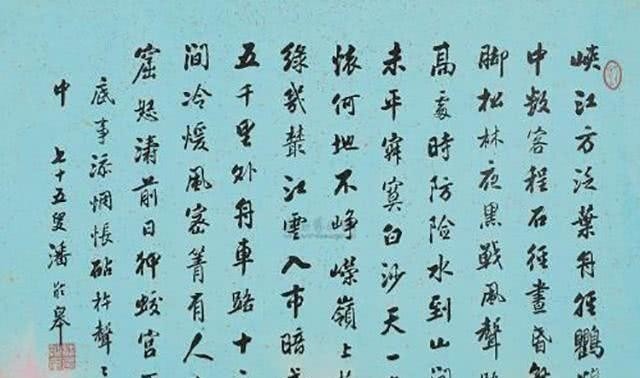 峽江方泛葉舟
中數客程石徑晝昏
脚松林夜黑戰風聲
高處時防險水到山
未平寂寞白沙天一
懷何地不崢嶸嶺上
綠幾叢江雲入市暗
五千里外舟車路十
間冷煖風密箐有人
窟怒濤前日狎蛟宮
底事添惆悵砧杵聲
中 七十五叟潘齡皋